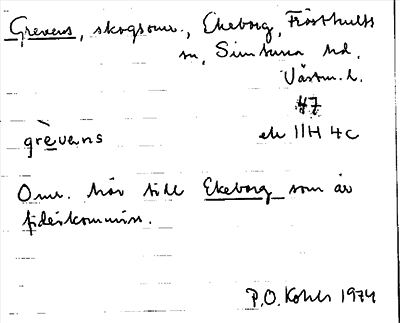 Grevens, skogsomr., Ekeborg, Frösthults
sn, Simtuna hd,
Västm. l.
47
grèvens ek 11H 4c
Omr. hör till Ekeborg som är
fideikommiss.
P.O. Kohls 1974